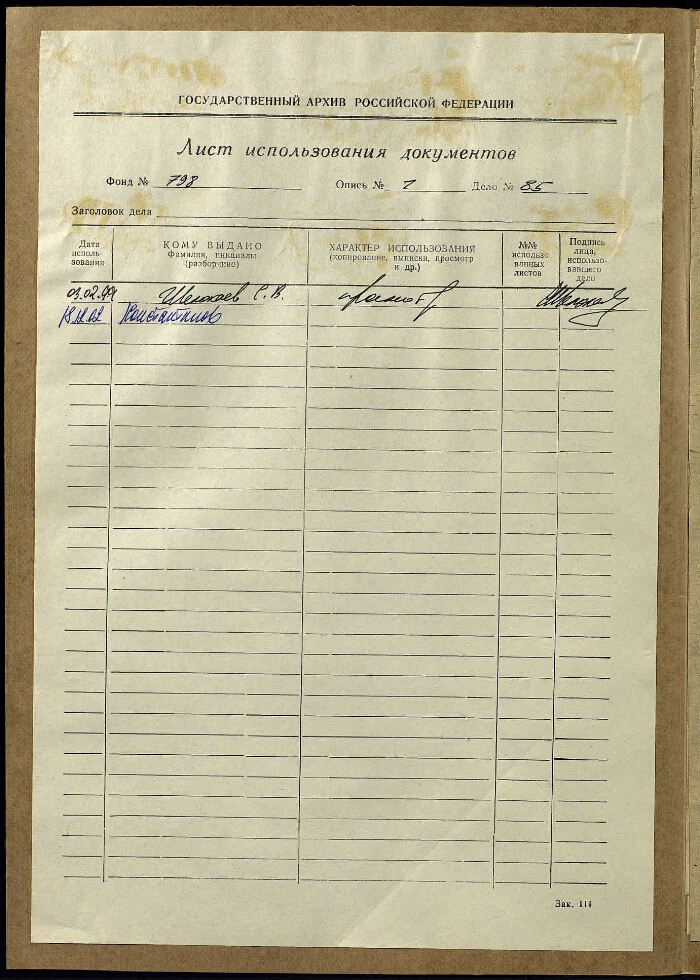 ГОСУДАРСТВЕННЫЙ АРХИВ РОССИЙСКОЙ ФЕДЕРАЦИИ
Лист использования документов
Фонд № 798 Опись № 1 Дело № 85
Заголовок дела
Дата использования
КОМУ ВЫДАНО
Фамилия, инициалы
(разборчиво)
ХАРАКТЕР ИСПОЛЬЗОВАНИЯ
(копирование, выписки, просмотр
и др.)
№№
использо
ванных
листов
Подпись
лица,
использо-
вавшего
дело
03.02.99 С. В.
18.12.02 Константинов
Зак. 114